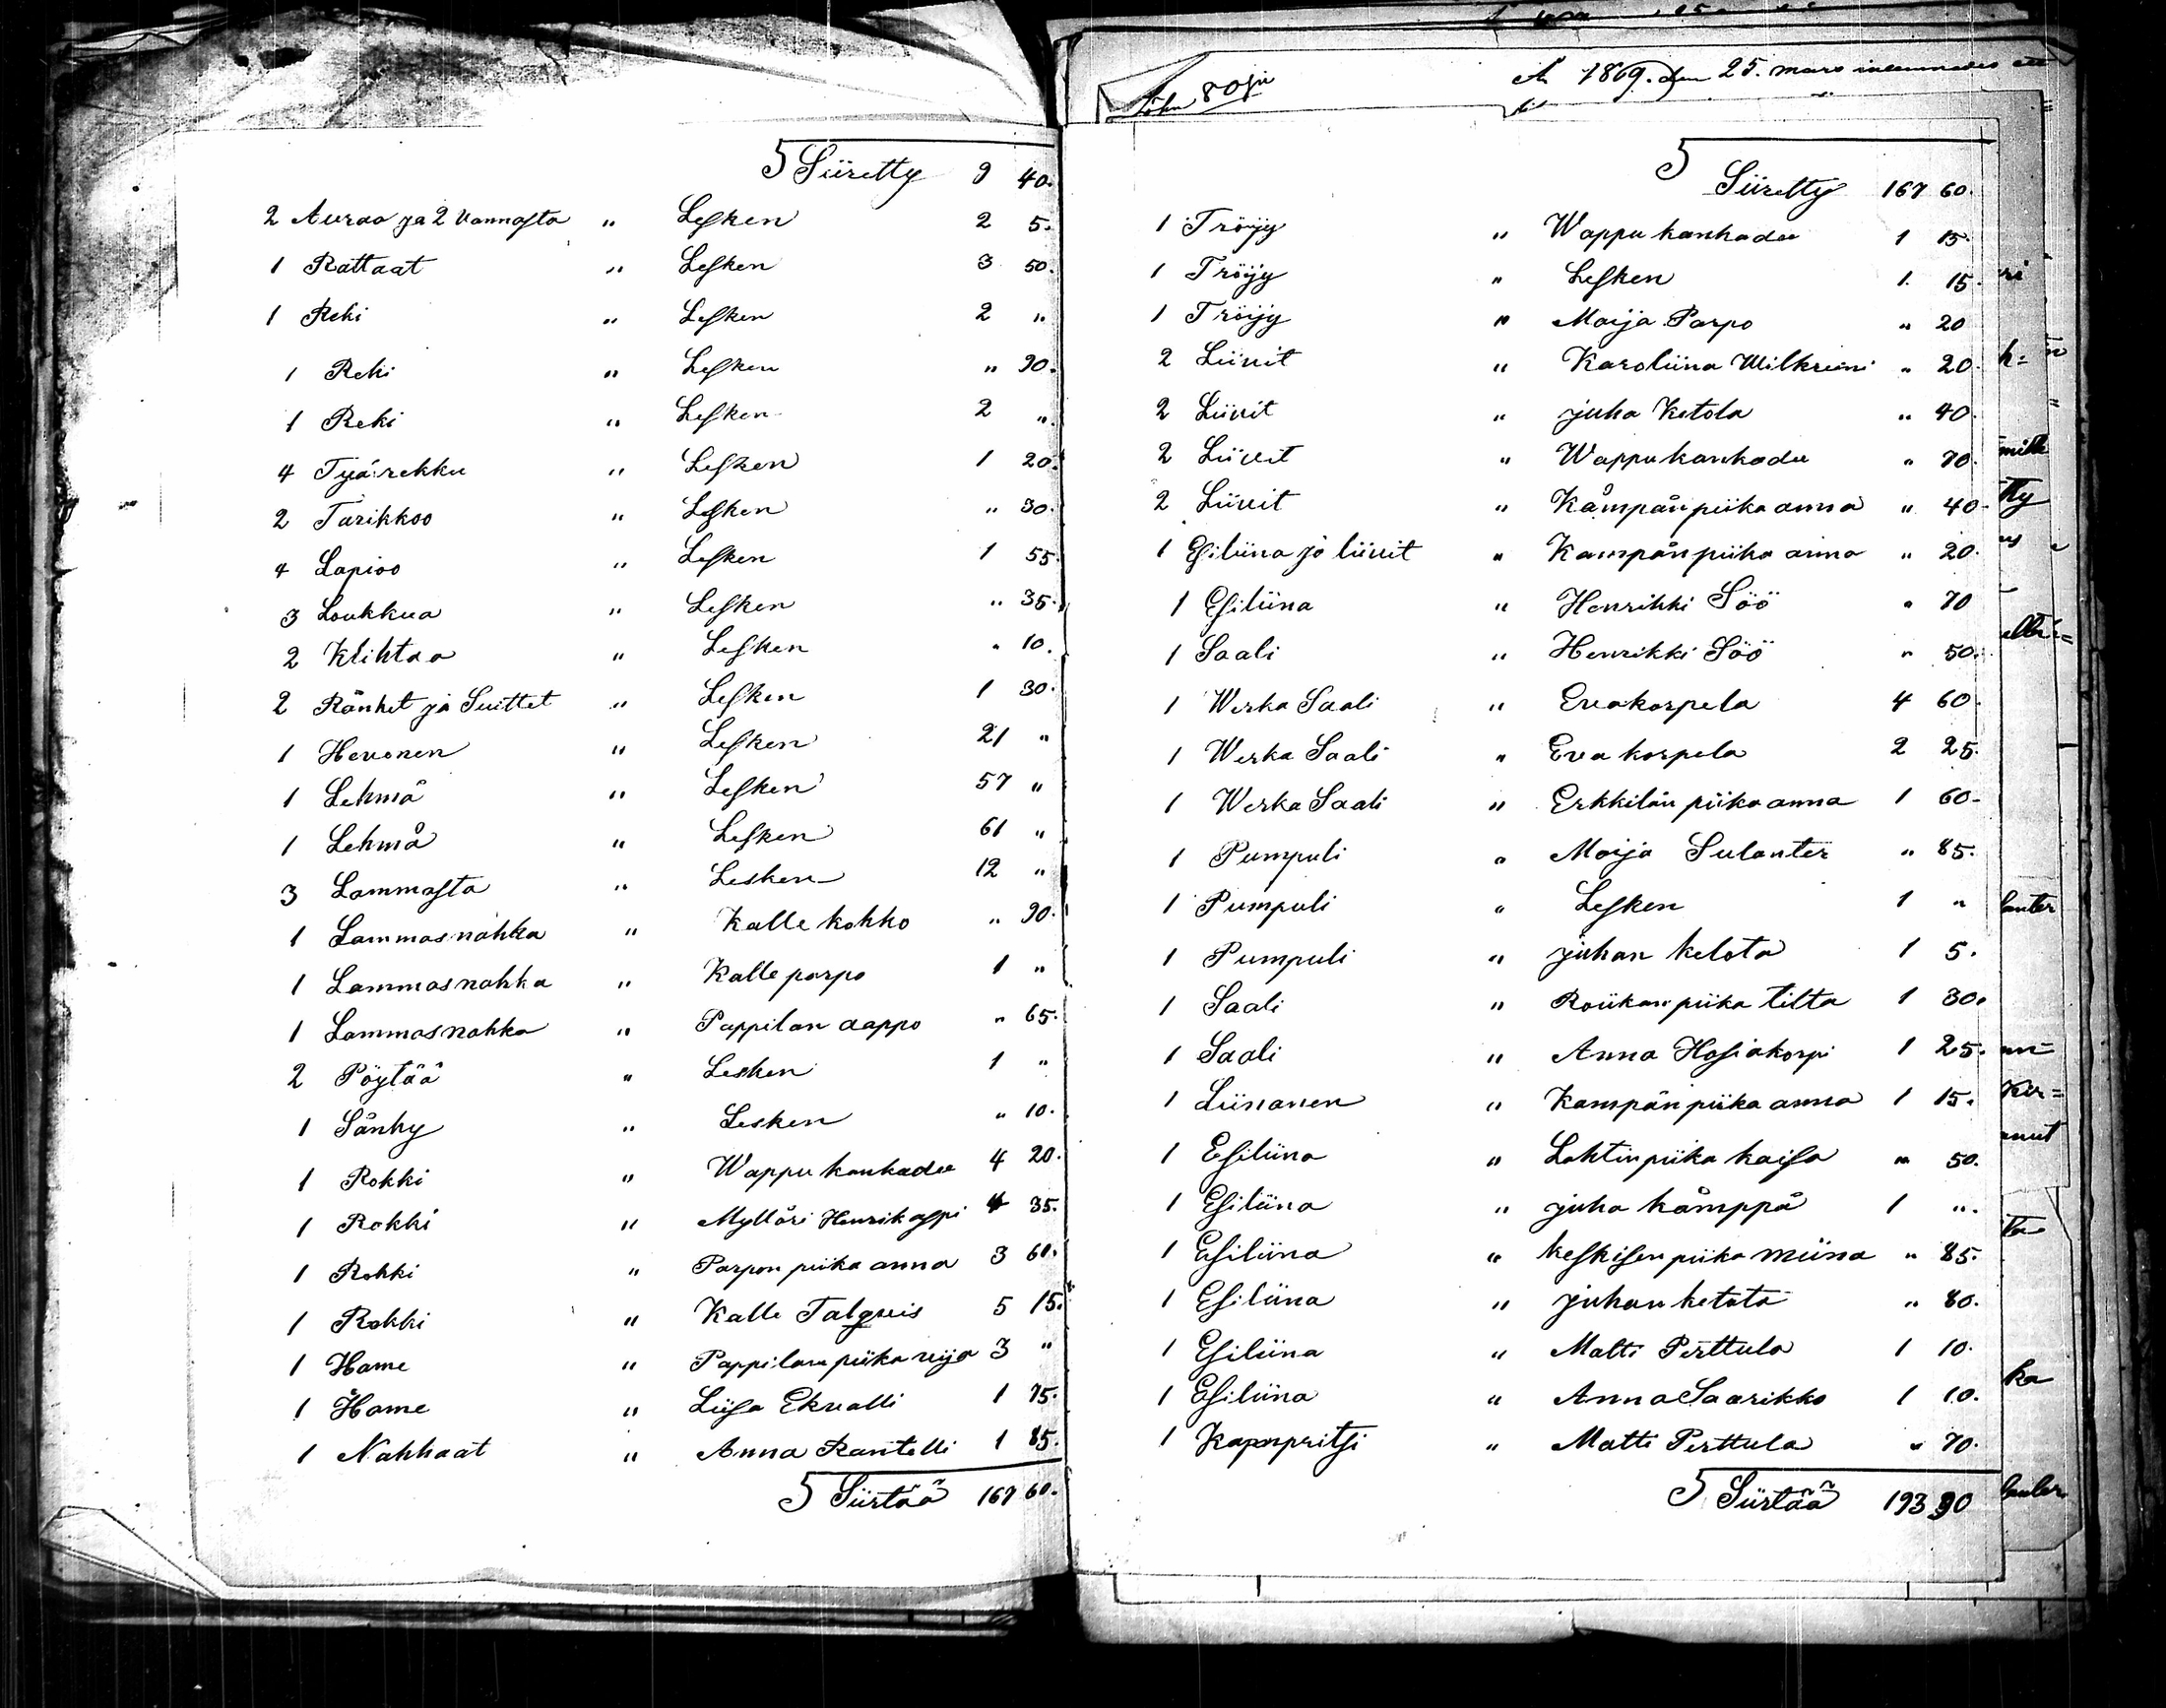 Siiretty 9 40.
2 Auraa ja 2 Vannasta " Lesken 2 5.
1 Rattaat " Lesken 3 50.
1 Reki " Lesken 2 "
1 Reki " Lesken " 90.
1 Reki " Lesken 2 "
4 Tyärekku " Lesken 1 20.
2 Tarikkoo " Lesken " 30.
4 Lapioo " Lesken 1 55.
3 Loukkua " Lesken " 35.
2 Klihtaa " Lesken " 10.
2 Ränket ja Suittet " Lesken 1 30.
1 Hevonen " Lesken 21 "
1 Lehmä " Lesken 57 "
1 Lehmå " Lesken 61 "
3 Lammasta " Lesken 12 "
1 Lammasnahka " Kalle kokko " 90.
1 Lammasnahka " Kalle parpo 1 "
1 Lammasnahka " Pappilan aappo " 65.
2 Pöytää " Lesken 1 "
1 Sänky " Lesken " 10.
1 Rokki " Wappu kankadee 4 20.
1 Rokki " Mylläri Henrik 4 35.
1 Rokki " Parpon piika anna 3 60.
1 Rokki " Kalle Talqvis 5 15.
1 Hame " Pappilan piika 3 "
1 Hame " Liisa Ekvalli 1 75.
1 Nahhaat " Anna Rantelli 1 85.
Siirtää 167 60.
A 1869. den 25. mars
Siiretty 167 60.
1 Tröijy " Wappu kankadee 1 15.
1 Tröijy " Lesken 1. 15.
1 Tröijy " Maija Parpo " 20
2 Liivit " Karoliina " 20.
2 Liivit " juha Ketola " 40.
2 Liivit " Wappu kankadee " 70.
2 Liivit " Kåmpån piika anna " 40.
1 Esiliina ja liivit " Kampån piika anna " 20.
1 Esiliina " Henrikki Söö " 70
1 Saali " Henrikki Söö " 50.
1 Werka Saali " Eva korpela 4 60.
1 Werka Saali " Eva korpela 2 25.
1 Werka Saali " Erkkilän piika anna 1 60.
1 Pumpuli " Maija Sulanter " 85.
1 Pumpuli " Lesken 1 "
1 Pumpuli " juhan ketota 1 5.
1 Saali " piika tilta 1 30.
1 Saali " Anna Hosiakorpi 1 25.
1 Liinanen " Kampån piika anna 1 15.
1 Esiliina " Lahtin piika kaisa " 50.
1 Esiliina " juha kåmppå 1 "
1 Esiliina " keskisen piika miina " 85.
1 Esiliina " juhan ketota " 80.
1 Esiliina " Matti Perttula 1 10.
1 Esiliina " Anna Saarikko 1 10.
1 Kapupritsi " Matti Perttula " 70.
Siirtää 193 90